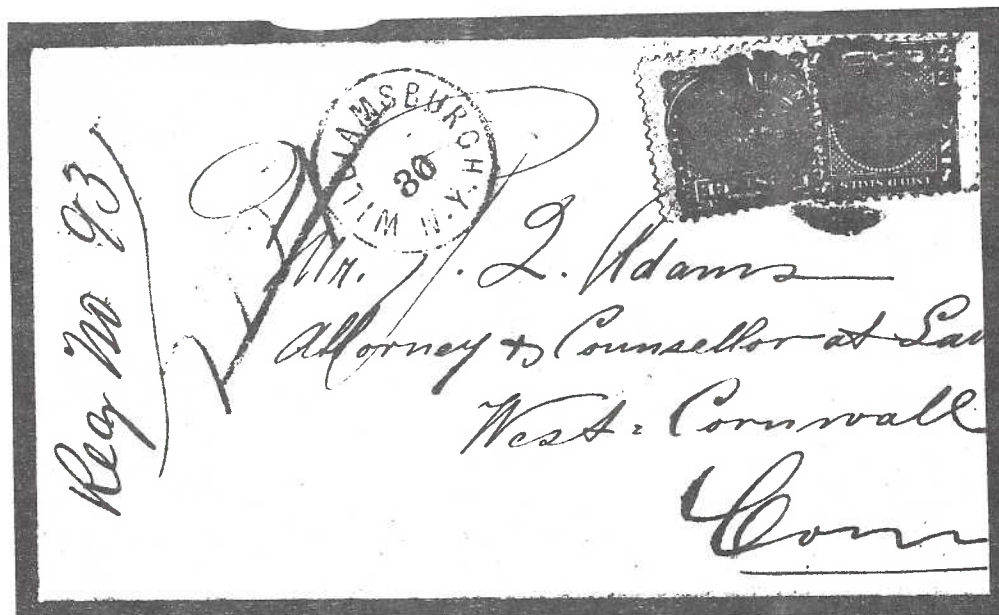 WILLIAMSBURGH. N.Y.
30
Reg No 93
Mr. J. Q. Adams
Attorney & Counsellor at Law
West = Cornwall
Conn